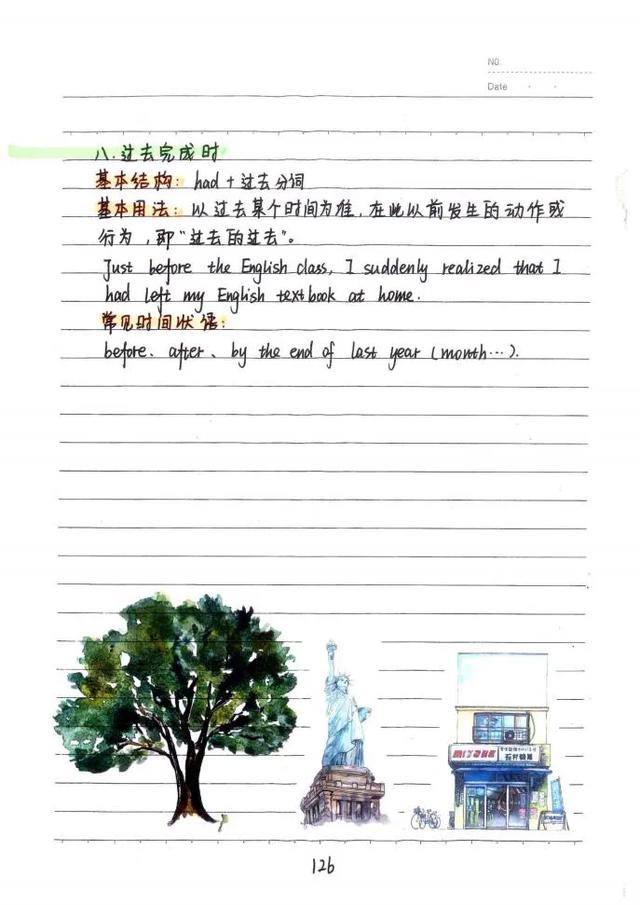 NO.
Date
八.过去完成时
基本结构：had + 过去分词
基本用法：以过去某个时间为准，在此以前发生的动作或
行为，即“过去的过去”。
Just before the English class, I suddenly realized that I
had left my English textbook at home.
常见时间状语：
before、after、by the end of last year (month…).
126